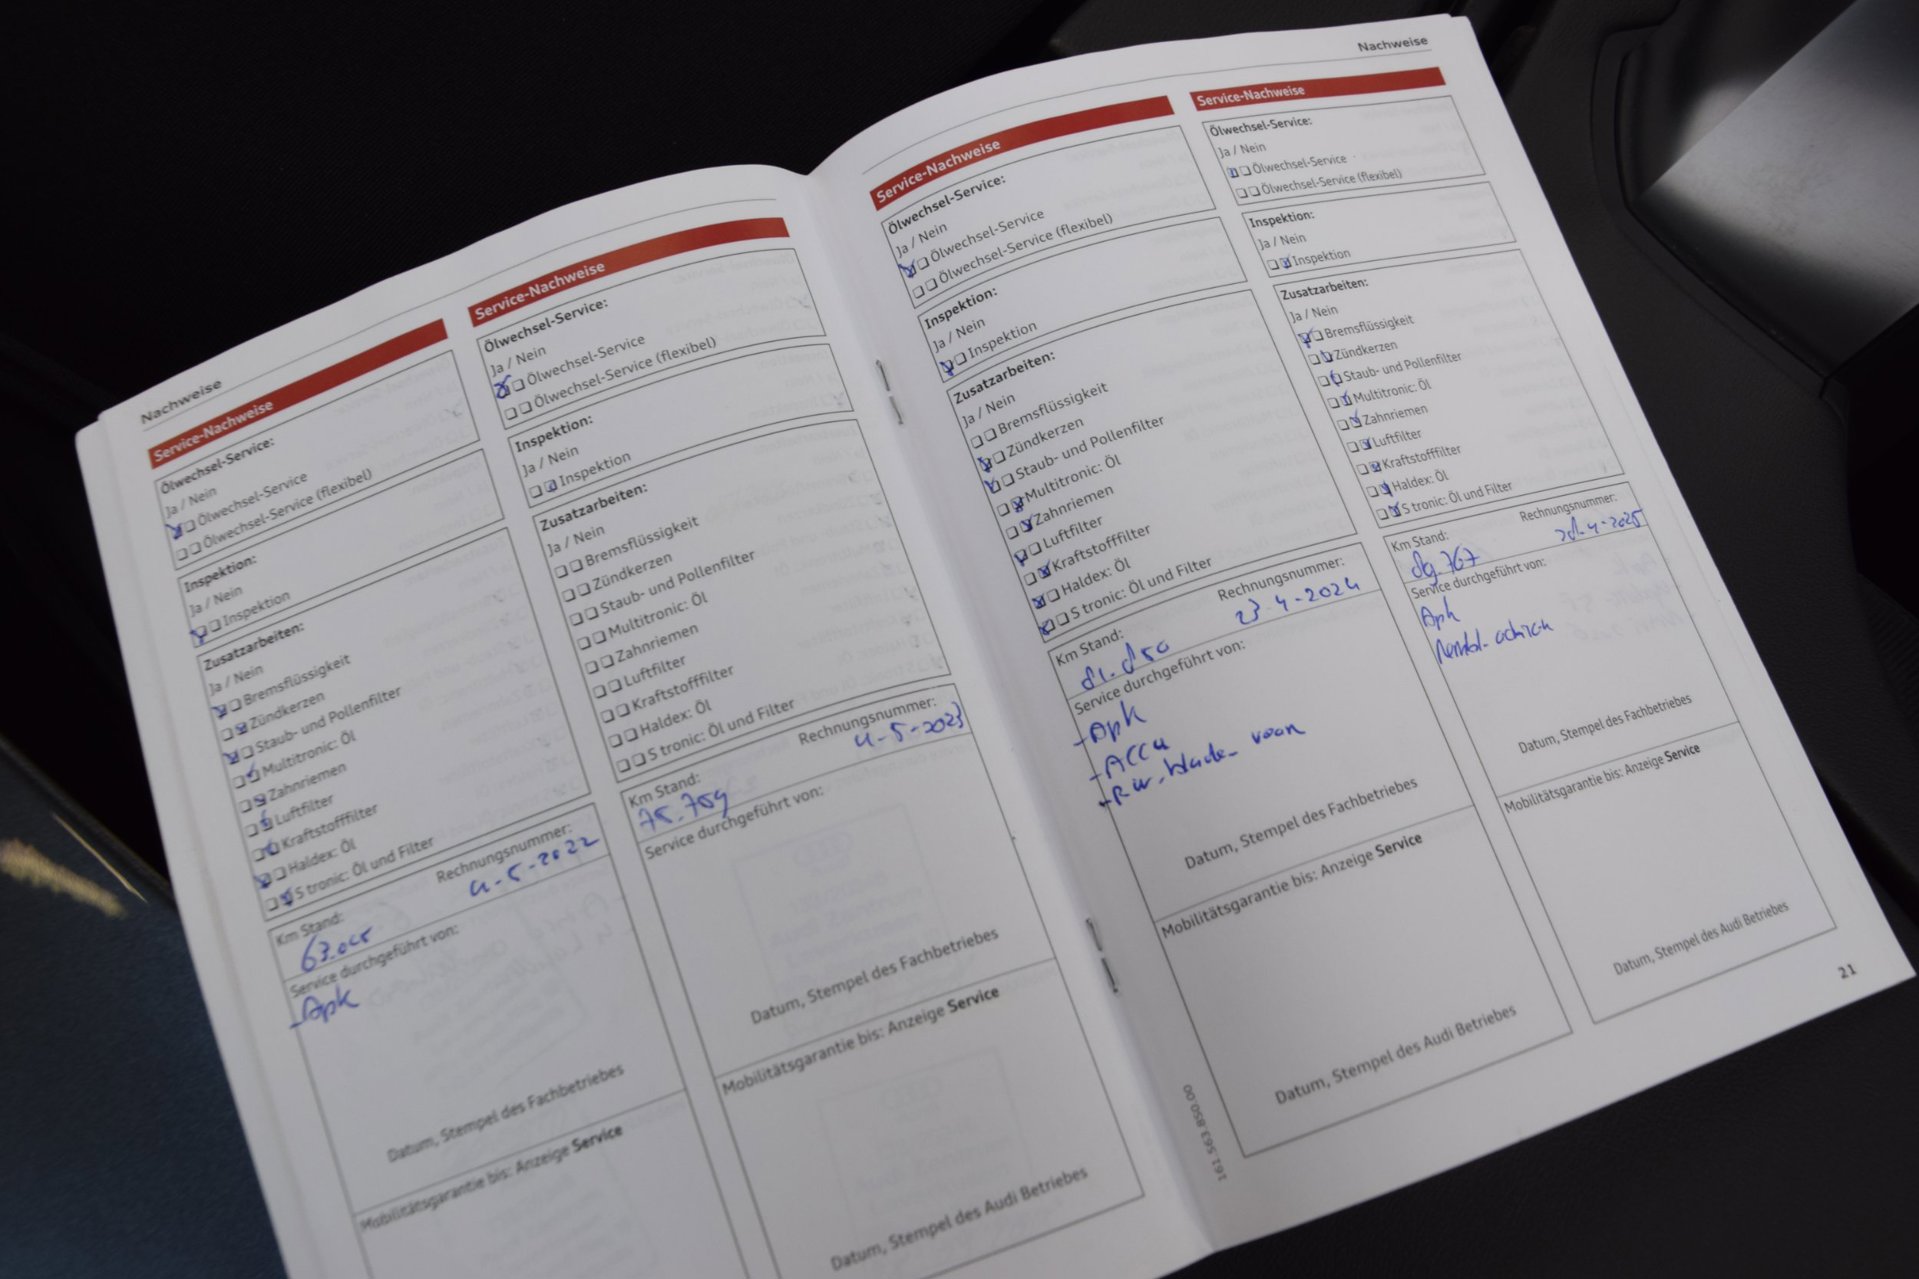 Nachweise
Service-Nachweise
Ölwechsel-Service:
Ja / Nein
Ölwechsel-Service
Ölwechsel-Service (flexibel)
Inspektion:
Ja / Nein
Inspektion
Zusatzarbeiten:
Ja / Nein
Bremsflüssigkeit
Zündkerzen
Staub- und Pollenfilter
Multitronic: Öl
Zahnriemen
Luftfilter
Kraftstofffilter
Haldex: Öl
S tronic: Öl und Filter
Km Stand: Rechnungsnummer:
4-5-2022
Service durchgeführt von:
-Apk
Datum, Stempel des Fachbetriebes
Mobilitätsgarantie bis: Anzeige Service
Service-Nachweise
Ölwechsel-Service:
Ja / Nein
Ölwechsel-Service
Ölwechsel-Service (flexibel)
Inspektion:
Ja / Nein
Inspektion
Zusatzarbeiten:
Ja / Nein
Bremsflüssigkeit
Zündkerzen
Staub- und Pollenfilter
Multitronic: Öl
Zahnriemen
Luftfilter
Kraftstofffilter
Haldex: Öl
S tronic: Öl und Filter
Km Stand: Rechnungsnummer:
75.759 4-5-2023
Service durchgeführt von:
Datum, Stempel des Fachbetriebes
Mobilitätsgarantie bis: Anzeige Service
Datum, Stempel des Audi Betriebes
Service-Nachweise
Ölwechsel-Service:
Ja / Nein
Ölwechsel-Service
Ölwechsel-Service (flexibel)
Inspektion:
Ja / Nein
Inspektion
Zusatzarbeiten:
Ja / Nein
Bremsflüssigkeit
Zündkerzen
Staub- und Pollenfilter
Multitronic: Öl
Zahnriemen
Luftfilter
Kraftstofffilter
Haldex: Öl
S tronic: Öl und Filter
Km Stand: Rechnungsnummer:
81.850 23-4-2024
Service durchgeführt von:
-Apk
-Accu
Datum, Stempel des Fachbetriebes
Mobilitätsgarantie bis: Anzeige Service
Datum, Stempel des Audi Betriebes
161.563.850.00
Nachweise
Service-Nachweise
Ölwechsel-Service:
Ja / Nein
Ölwechsel-Service
Ölwechsel-Service (flexibel)
Inspektion:
Ja / Nein
Inspektion
Zusatzarbeiten:
Ja / Nein
Bremsflüssigkeit
Zündkerzen
Staub- und Pollenfilter
Multitronic: Öl
Zahnriemen
Luftfilter
Kraftstofffilter
Haldex: Öl
S tronic: Öl und Filter
Km Stand: Rechnungsnummer:
89.767
Service durchgeführt von:
Apk
Datum, Stempel des Fachbetriebes
Mobilitätsgarantie bis: Anzeige Service
Datum, Stempel des Audi Betriebes
21